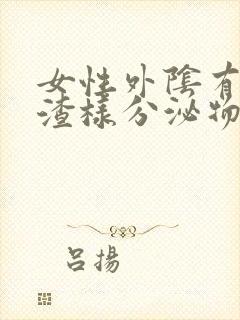 女性外陰有
渣樣分泌物
呂揚